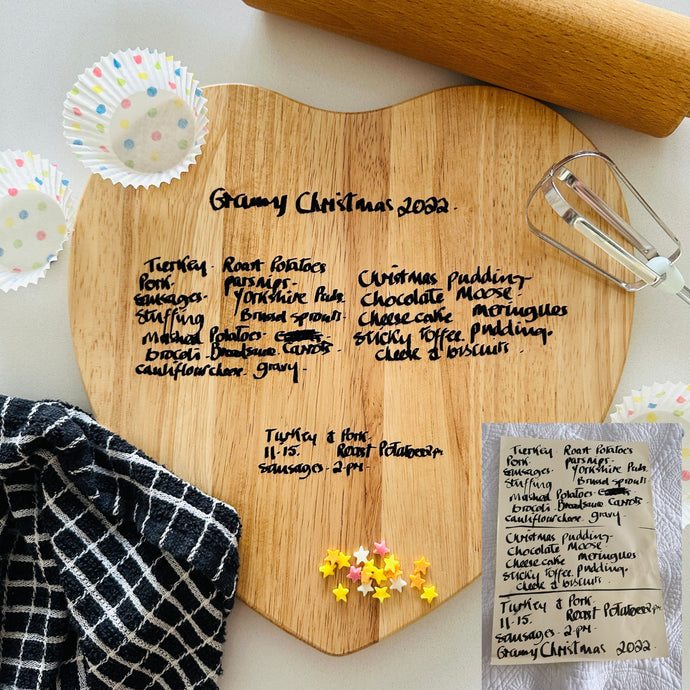 Grammy Christmas 2022.
Tierkey. Roast Potatoes
Pork. parsnips.
sausages. Yorkshire Puds.
Stuffing Bread sprouts
Mashed Potatoes
brocoli. Breadsauce Carrots
cauliflower cheese. gravy.
Christmas pudding
Chocolate Moose.
Cheese cake meringues
sticky toffee pudding.
cheese & biscuits.
Turkey & Pork.
11-15. Roast Potatoes 2pm
Sausages - 2-PM.
Tierkey. Roast Potatoes
Pork. parsnips.
sausages. Yorkshire Puds.
Stuffing Bread sprouts
Mashed Potatoes
brocoli. Breadsauce Carrots
cauliflower cheese. gravy.
Christmas pudding.
Chocolate Moose.
Cheese cake meringues
sticky toffee pudding.
cheese & biscuits.
Turkey & Pork.
11-15. Roast Potatoes 2pm.
Sausages - 2-PM.
Grammy Christmas 2022.